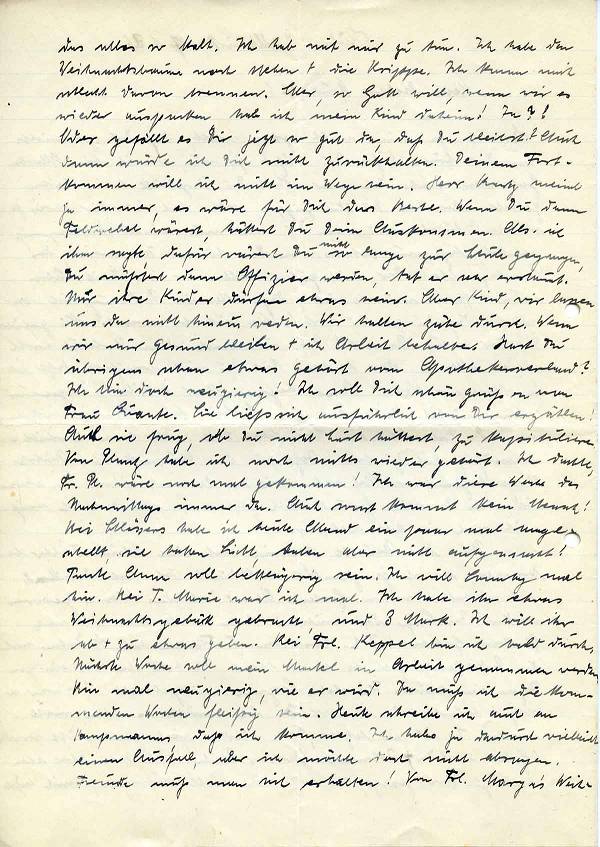 das alles so kalt. Ich hab mit mir zu tun. Ich habe den
Weihnachtsbaum noch stehen + die Krippe. Ich kann mich
schlecht davon trennen. Aber, so Gott will, wenn wir es
wieder auspacken hab ich mein Kind daheim! Ja?!
Oder gefällt es Dir jetzt so gut da, daß Du bleibst? Auch
dann würde ich Dich nicht zurückhalten. Deinem Fort-
kommen will ich nicht im Wege sein. Herr meint
ja immer, es wäre für Dich das Beste. Wenn Du dann
Feldwebel wärest, hättest Du Dein Auskommen. Als ich
ihm sagte dafür wärest Du nicht so lange zur Schule gegangen,
Du müßtest dann Offizier werden, tat er sehr erstaunt.
Nur ihre Kinder dürfen etwas sein. Aber Kind, wir lassen
uns da nicht hinein reden. Wir halten zähe durch. Wenn
wir nur gesund bleiben + ich Arbeit behalte. Hast Du
übrigens schon etwas gehört vom Apothekerverband?
Ich bin doch neugierig! Ich soll Dich schön grüßen von
Frau Quante. Sie ließ sich ausführlich von Dir erzählen!
Auch sie frug, ob Du nicht Lust hättest, zu kapitulieren.
Von habe ich noch nichts wieder gehört. Ich dachte,
Fr. Pl. wäre noch mal gekommen! Ich war diese Woche des
Nachmittags immer da. Auch sonst kommt kein Mensch!
Bei Schlössers habe ich heute Abend ein paar mal ange-
schellt, sie hatten Licht, haben aber nicht aufgemacht!
Tante Anna soll bettlägerig sein. Ich will Sonntag mal
hin. Bei T. Marie war ich mal. Ich habe ihr etwas
Weihnachtsgebäck gebracht, und 3 Mark. Ich will ihr
ab + zu etwas geben. Bei Frl. Keppel bin ich bald durch.
Nächste Woche soll mein Mantel in Arbeit genommen werden.
Bin mal neugierig, wie er wird. Da muß ich die kom-
menden Wochen fleißig sein. Heute schreibe ich auch an
daß ich komme. Ich habe ja dadurch vielleicht
einen Ausfall, aber ich möchte doch nicht absagen.
Freunde muß man sich erhalten! Von Frl. Weih-